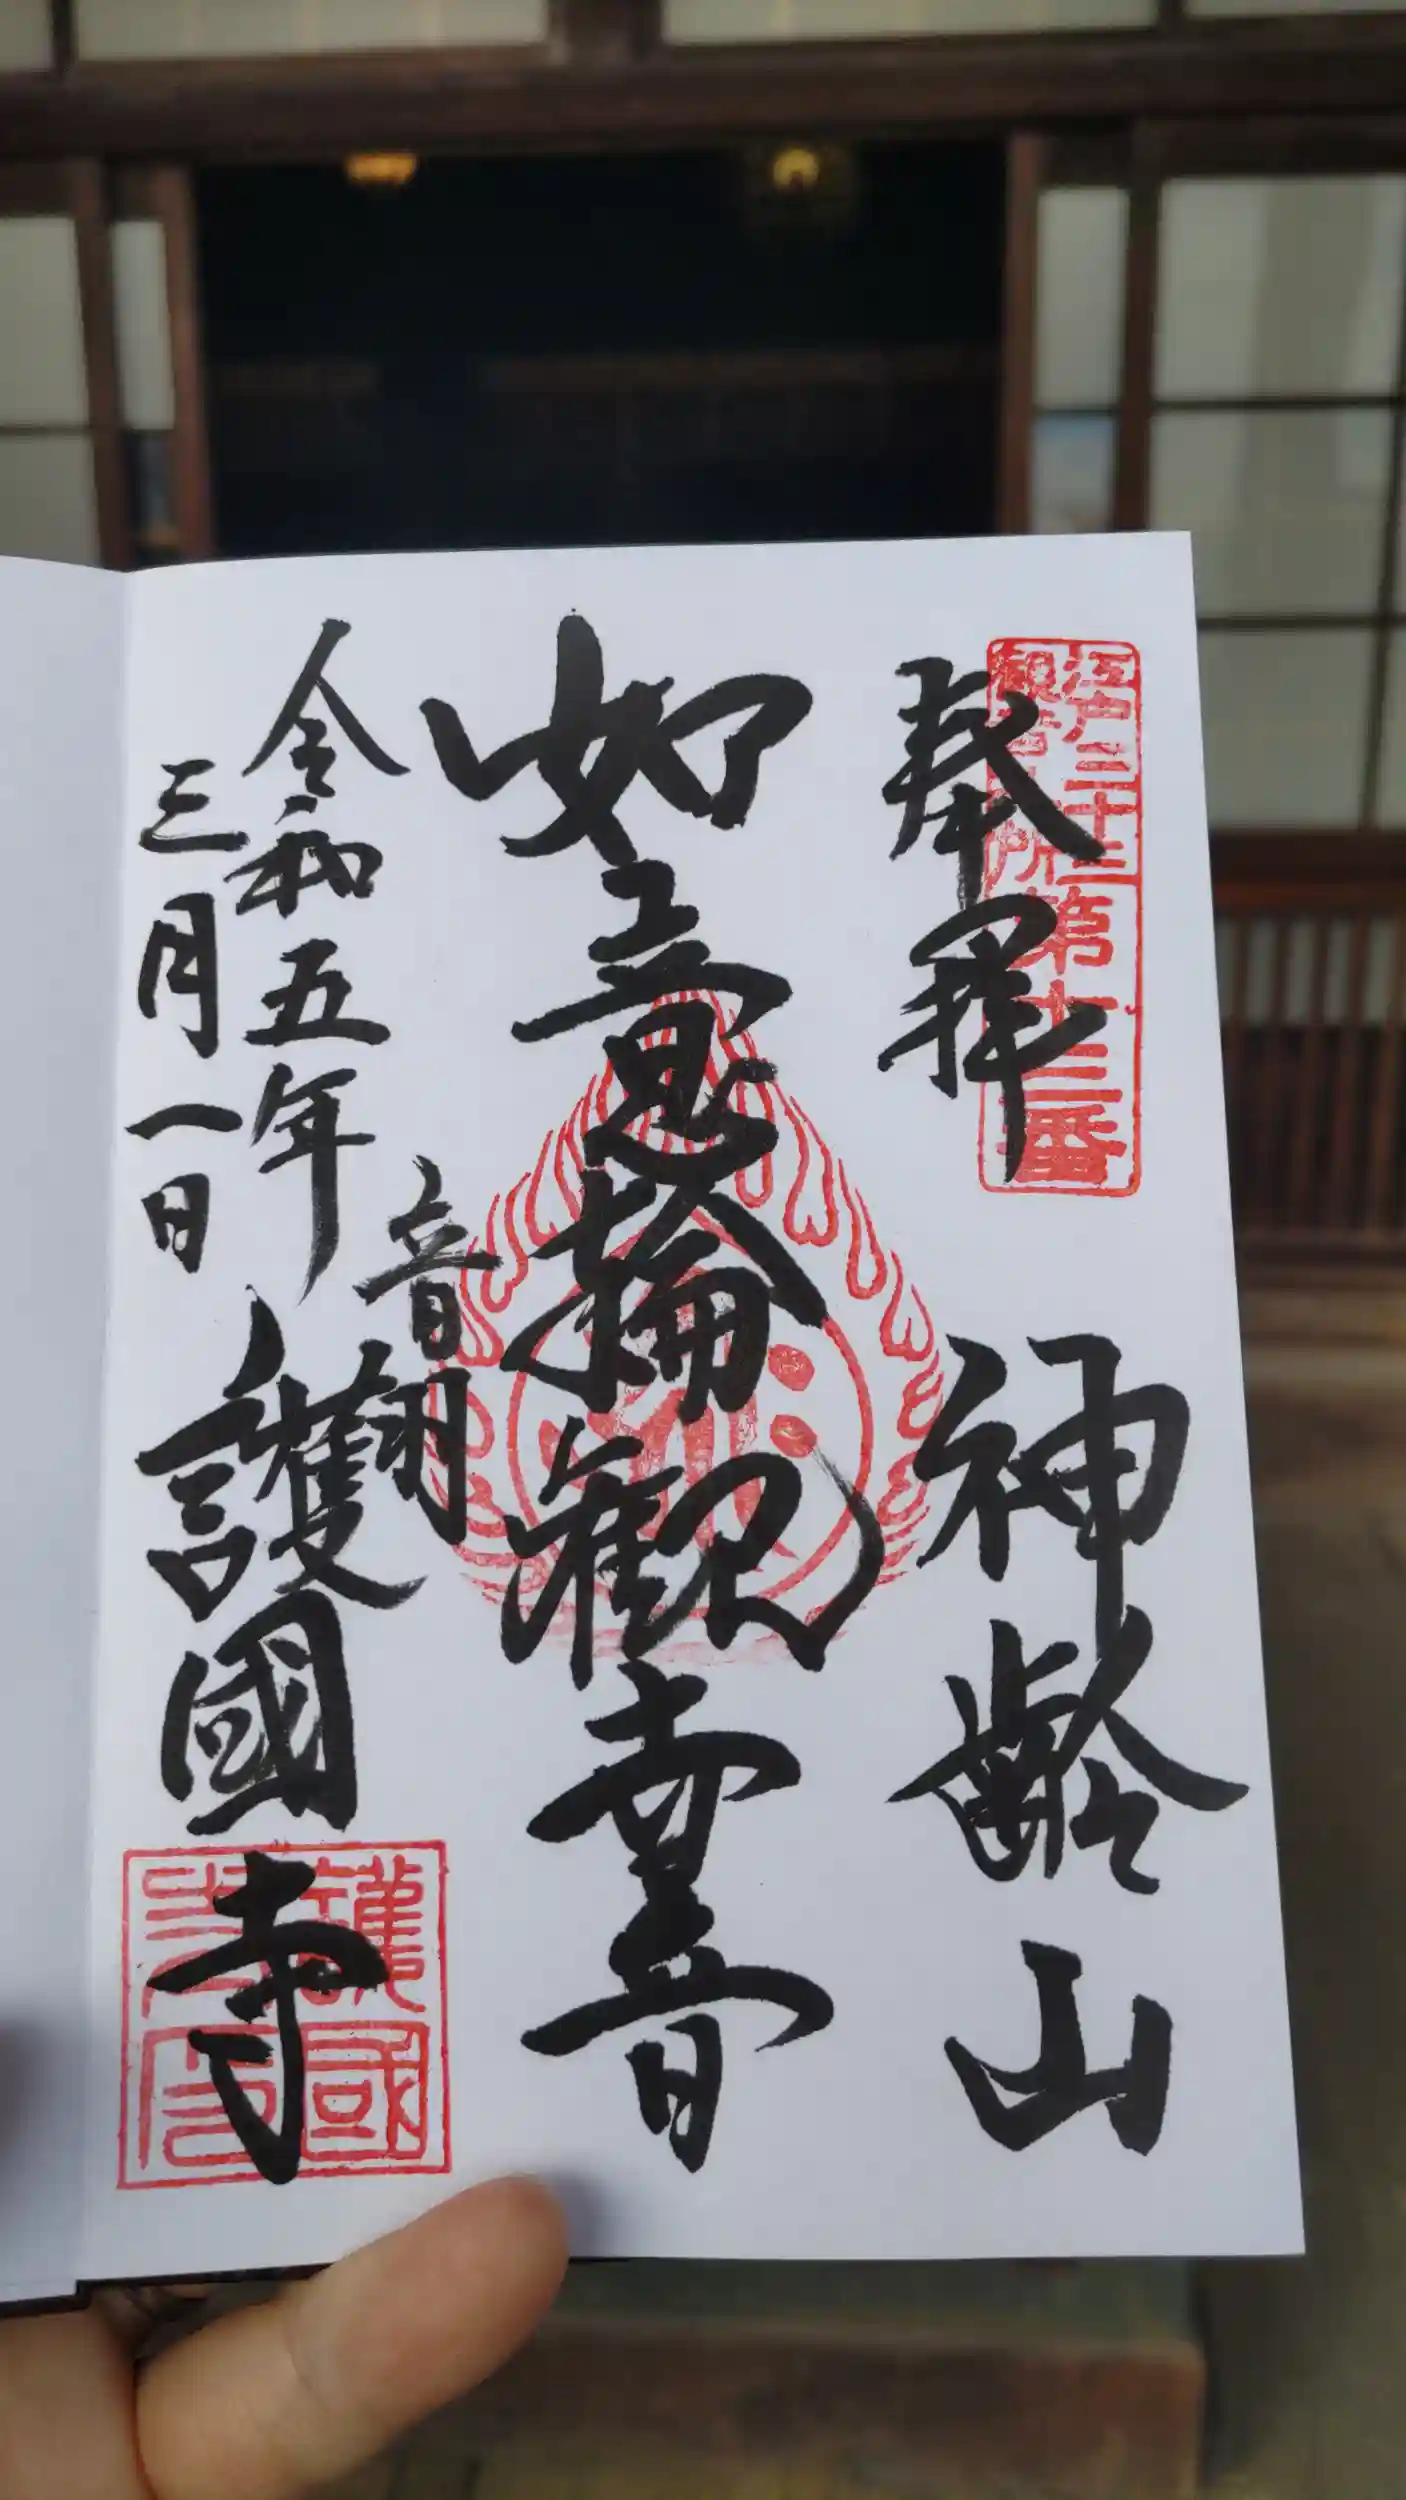 奉拝
江戸三十三
観音札所第十三番
神齢山
如意輪観世音
令和五年
三月一日
音羽
護國寺
護國
寺印